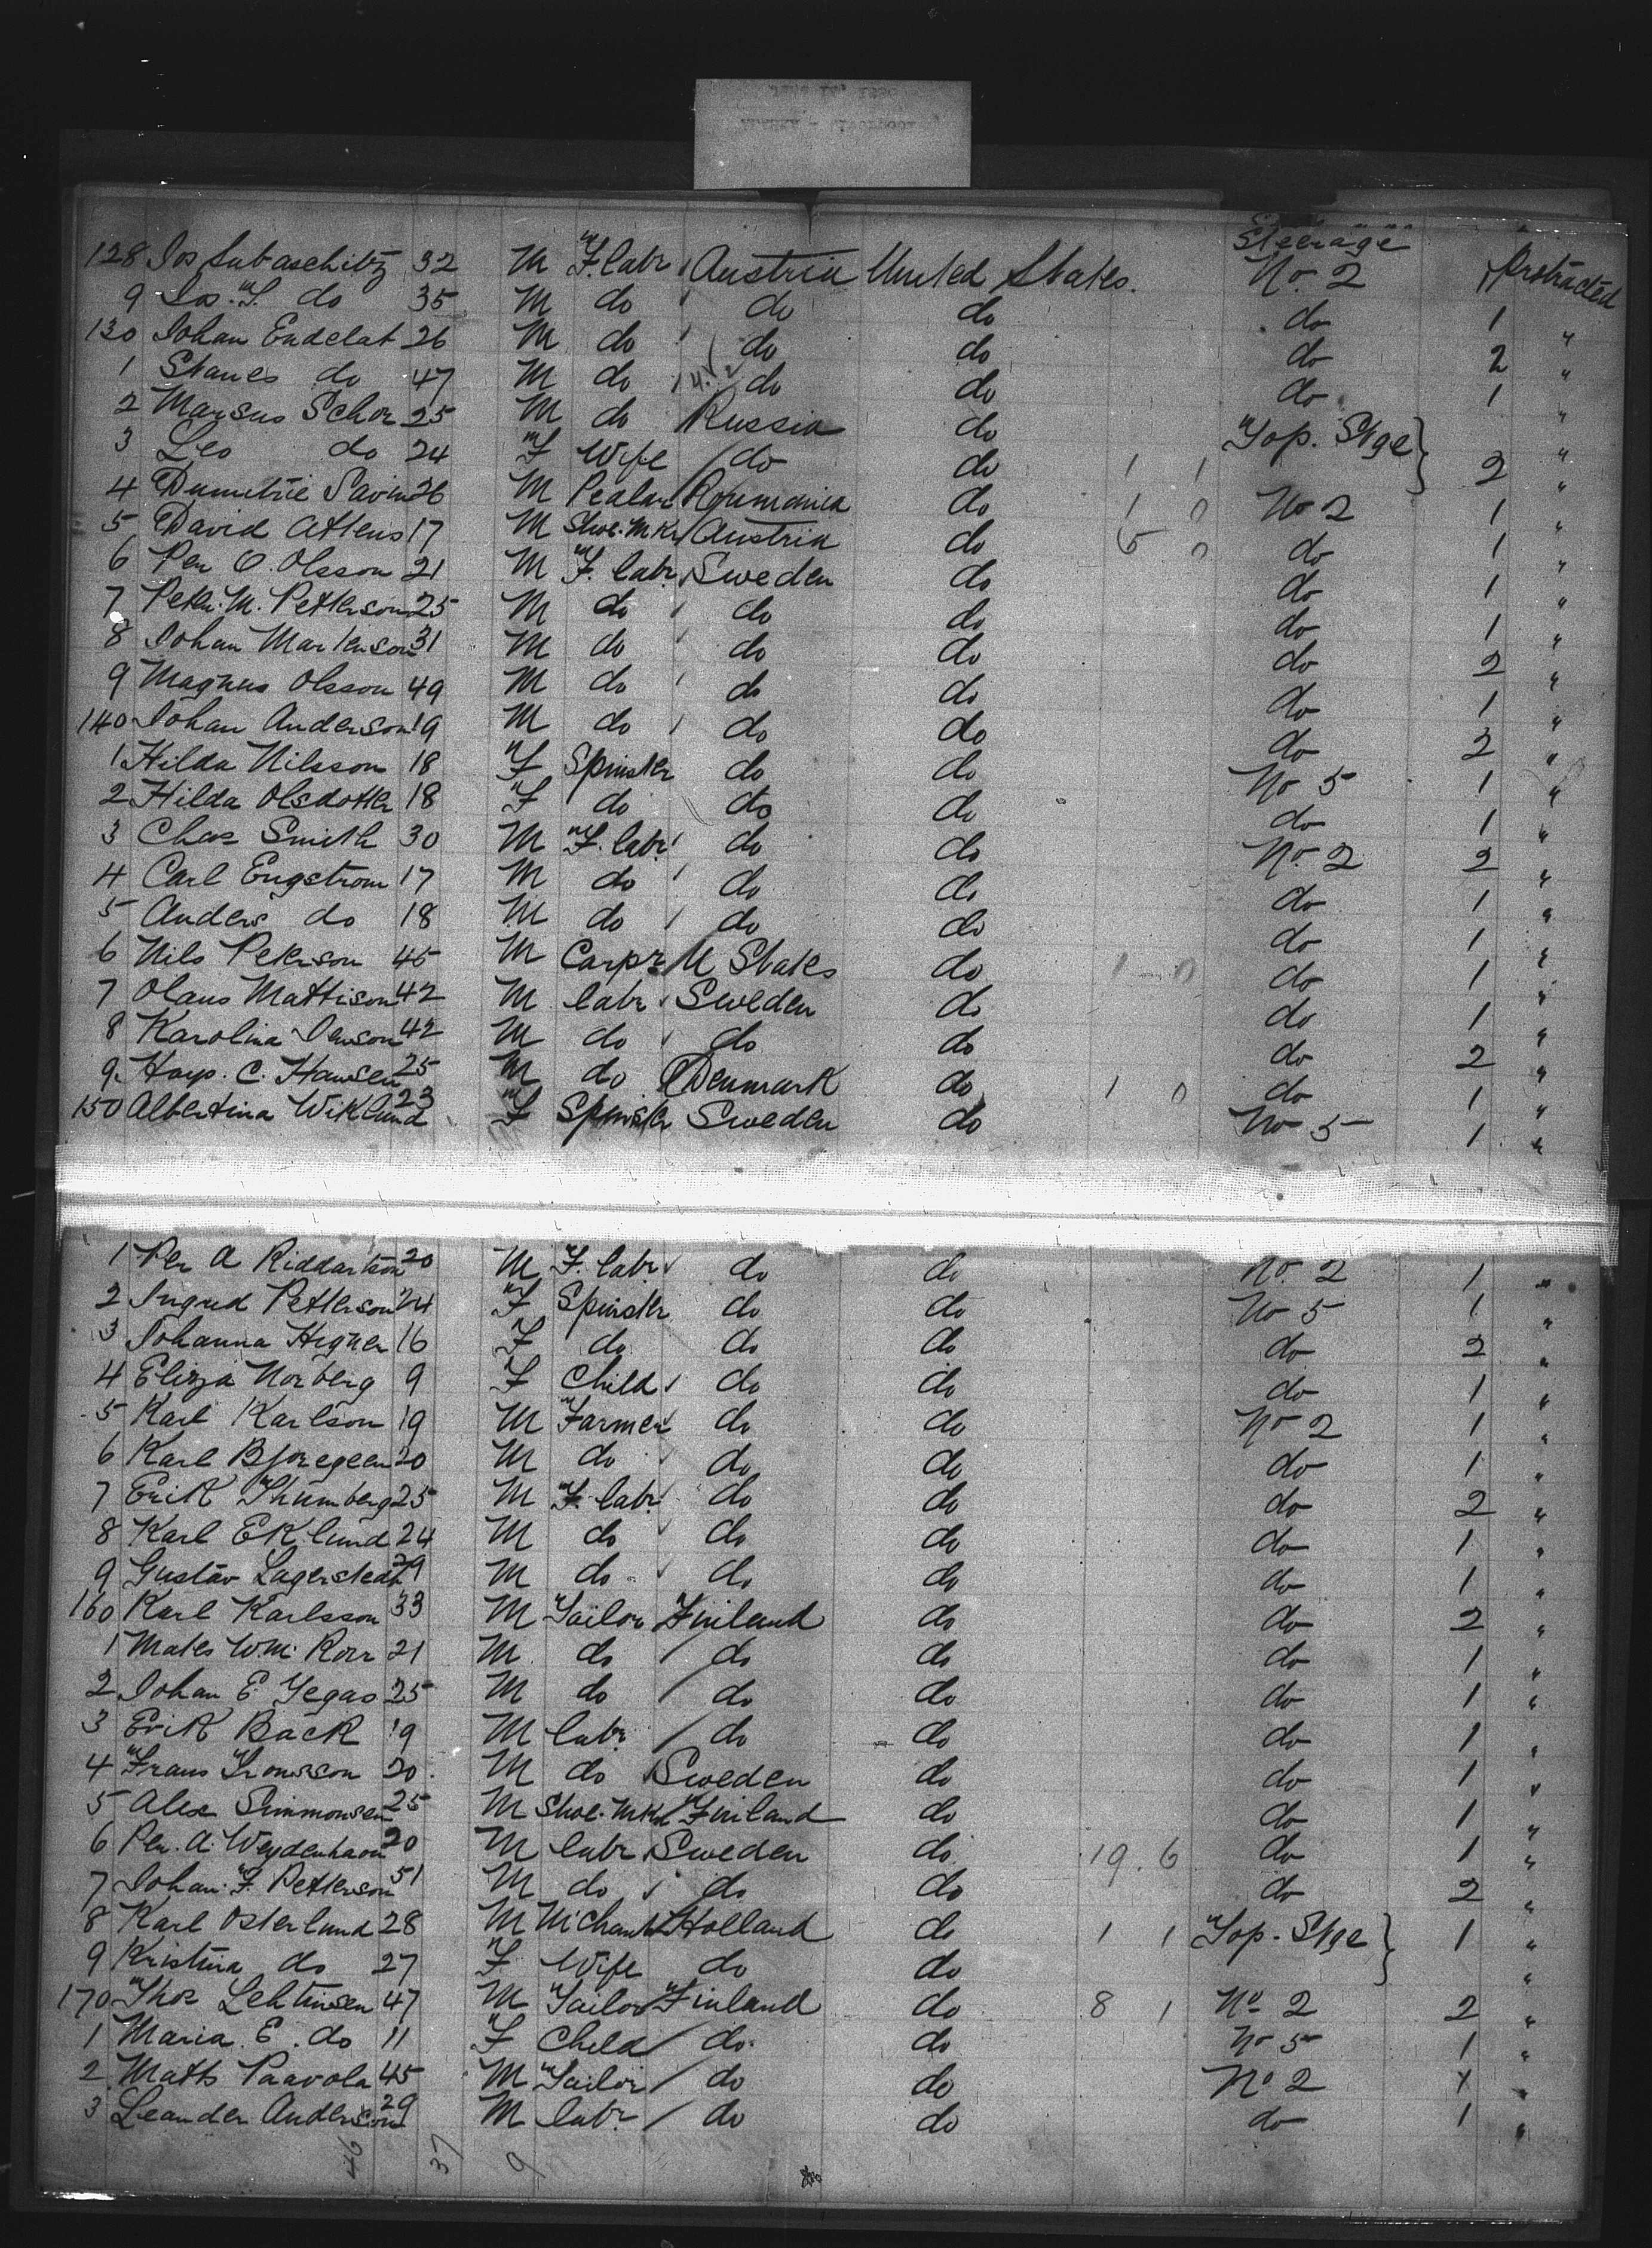 Steerage
128 Jos Lubaschitz 32 M F. labr Austria United States. No. 2 1 Protracted
9 Jos. F. do 35 M do do do do 1 "
130 Johan Endelat 26 M do do do do 2 "
1 Stanes do 47 M do do do do 1 "
2 Marsus Schor 25 M do Russia do Top. Stge } "
3 Leo do 24 F Wife do do 1 1 2 "
4 Dumitrie Savin 26 M Pealar Roumania do 1 0 No 2 1 "
5 David Attens 17 M Shoe. Mkr Austria do 5 0 do 1 "
6 Per O. Olsson 21 M F. labr Sweden do do 1 "
7 Peter. M. Petterson 25 M do do do do 1 "
8 Johan Martenson 31 M do do do do 2 "
9 Magnus Olsson 49 M do do do do 1 "
140 Johan Anderson 19 M do do do do 2 "
1 Hilda Nilsson 18 F Spinster do do No 5 1 "
2 Hilda Olsdotter 18 F do do do do 1 "
3 Chas Smith 30 M F. labr do do No. 2 2 "
4 Carl Engstrom 17 M do do do do 1 "
5 Anders do 18 M do do do do 1 "
6 Nils Peterson 45 M Carpr U States do 1 - 0 do 1 "
7 Olaus Mattison 42 M labr Sweden do do 1 "
8 Karolina Jenson 42 M do do do do 2 "
9. Hayp. C. Hansen 25 M do Denmark do 1 0 do 1 "
150 Albertina Wiklund 23 F Spinster Sweden do No 5 1 "
1 Per A Riddarhson 20 M F. labr do do No. 2 1 "
2 Ingrid Petterson 24 F Spinster do do No 5 1 "
3 Johanna Hegner 16 F do do do do 2 "
4 Eliza Norberg 9 F Child do do do 1 "
5 Karl Karlson 19 M Farmer do do No 2 1 "
6 Karl Bjoregeen 20 M do do do do 1 "
7 Erik Thumberg 25 M F. labr do do do 2 "
8 Karl Eklund 24 M do do do do 1 "
9 Gustav Lagerstedt 29 M do do do do 1 "
160 Karl Karlsson 33 M Tailor Finland do do 2 "
1 Mates Wm. Rorr 21 M do do do do 1 "
2 Johan E. Yegas 25 M do do do do 1 "
3 Erik Back 19 M labr do do do 1 "
4 Frans Tromsson 20. M do Sweden do do 1 "
5 Alex Simmonsen 25 M Shoe. Mkr Finland do do 1 "
6 Per. A. Weydenhaon 20 M labr Sweden do 19. 6 do 1 "
7 Johan. F. Petterson 51 M do do do do 2 "
8 Karl Osterlund 28 M Mchant Holland do 1 1 Top. Stge } 1 "
9 Kristina do 27 F Wife do do "
170 Thos Lehtinsen 47 M Tailor Finland do 8 1 No 2 2 "
1 Maria. E. do 11 F Child do. do No 5 1 "
2 Matts Paavola 45 M Tailor do do No 2 X "
3 Leander Anderson 29 M labr do do do 1 "
46 37 9